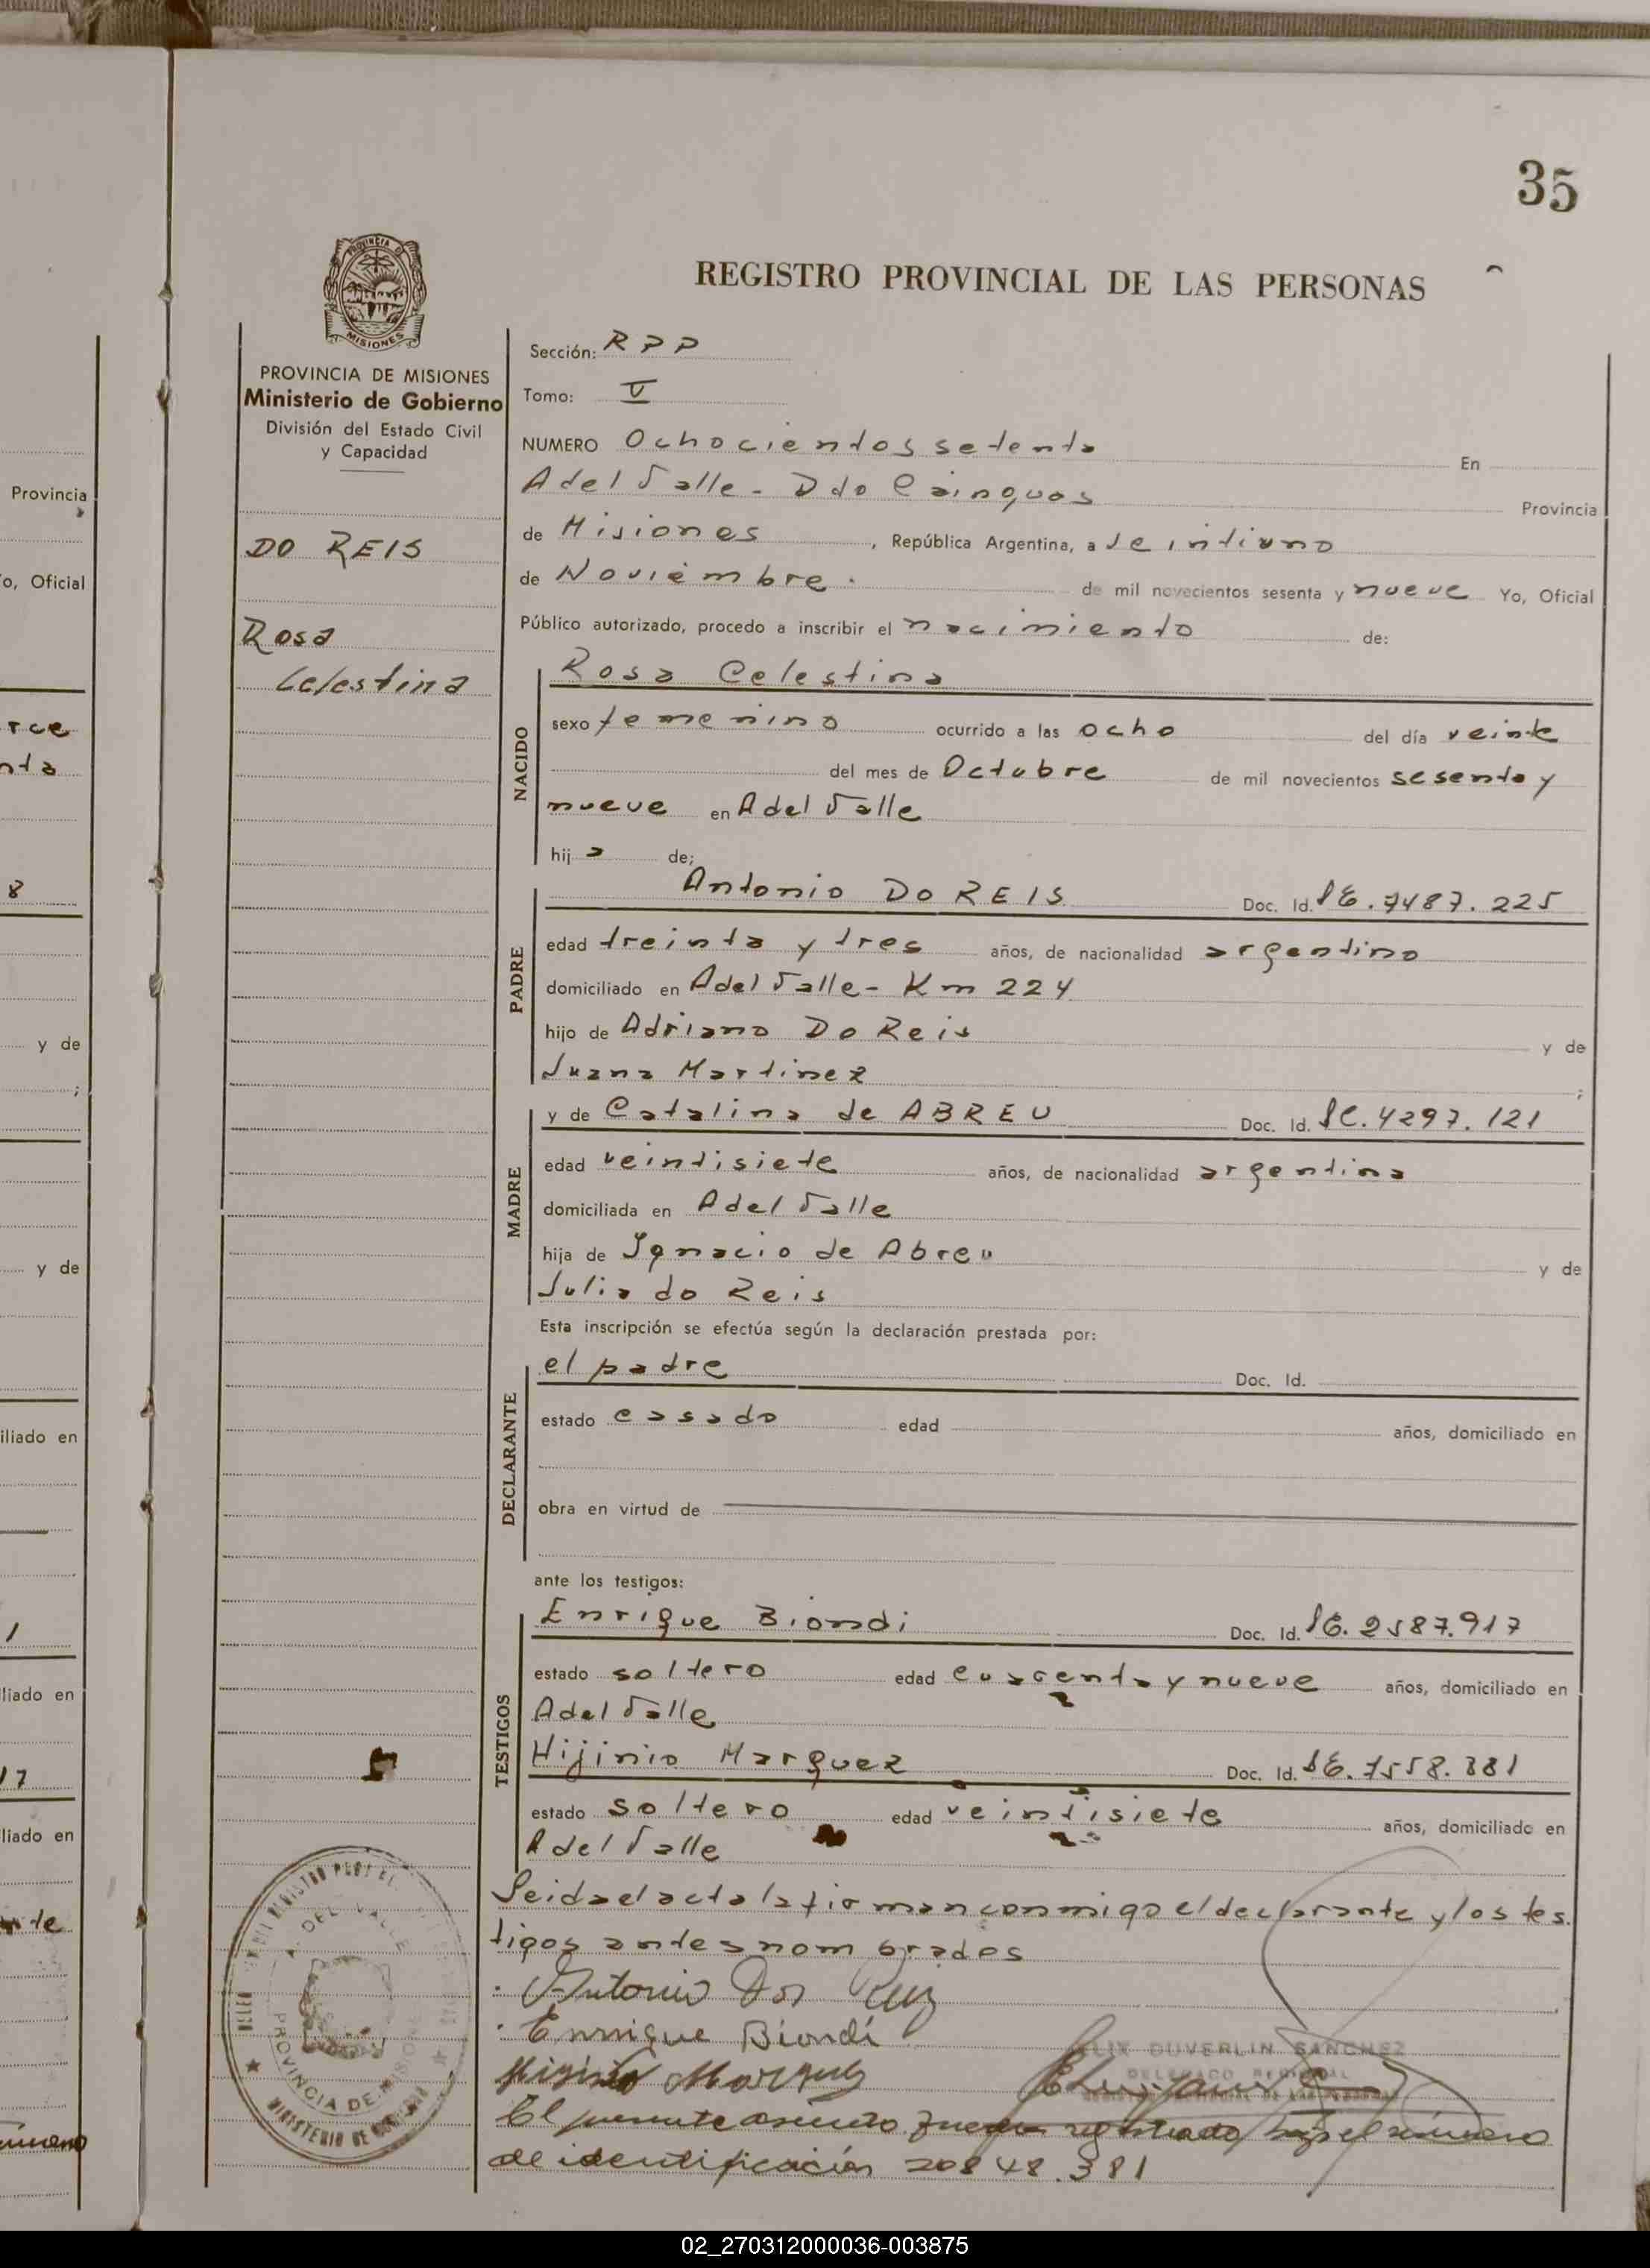 35
REGISTRO PROVINCIAL DE LAS PERSONAS
PROVINCIA DE MISIONES
Ministerio de Gobierno
División del Estado Civil
y Capacidad
DO REIS
Rosa
Celestina
Sección: RPP
Tomo: V
NUMERO Ochocientos setenta En
A del Valle - Dto Cainguas Provincia
de Misiones, República Argentina, a veintiuno
de Noviembre. de mil novecientos sesenta y nueve Yo, Oficial
Público autorizado, procedo a inscribir el nacimiento de:
Rosa Celestina
NACIDO
sexo femenino ocurrido a las ocho del día veinte
del mes de Octubre de mil novecientos sesenta y
nueve en A del Valle
hij a de;
Antonio DO REIS Doc. Id. LE. 7487.225
PADRE
edad treinta y tres años, de nacionalidad argentino
domiciliado en A del Valle - Km 224
hijo de Adriano Do Reis y de
Juana Martinez ;
y de Catalina de ABREU Doc. Id. LC. 4297.121
MADRE
edad veintisiete años, de nacionalidad argentina
domiciliada en A del Valle
hija de Ignacio de Abreu y de
Julia do Reis
Esta inscripción se efectúa según la declaración prestada por:
el padre Doc. Id.
DECLARANTE
estado casado edad años, domiciliado en
obra en virtud de
ante los testigos:
Enrique Biondi Doc. Id. LE. 2587.917
TESTIGOS
estado soltero edad cuarenta y nueve años, domiciliado en
A del Valle
Hijinio Marquez Doc. Id. LE. 7558.381
estado soltero edad veintisiete años, domiciliado en
A del Valle
Leida el acta la firman conmigo el declarante y los tes
tigos antes nombrados
Antonio Dos
Enrrique Biondi
DUVERLIN SANCHEZ
El presente asiento fue registrado bajo el número
de identificación 20848.381
A. DEL VALLE
PROVINCIA DE MISIONES
MINISTERIO DE
Provincia
o, Oficial
rce
nta
8
y de
;
y de
iliado en
1
liado en
17
liado en
nte
02_270312000036-003875